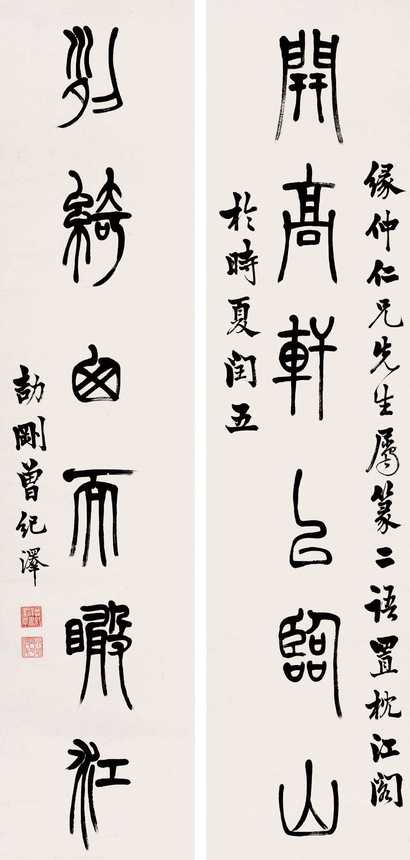 緣仲仁兄先生屬篆二語置枕江閣
開高軒以臨山
於時夏閏五
列綺囪而瞰江
劼剛曾紀澤